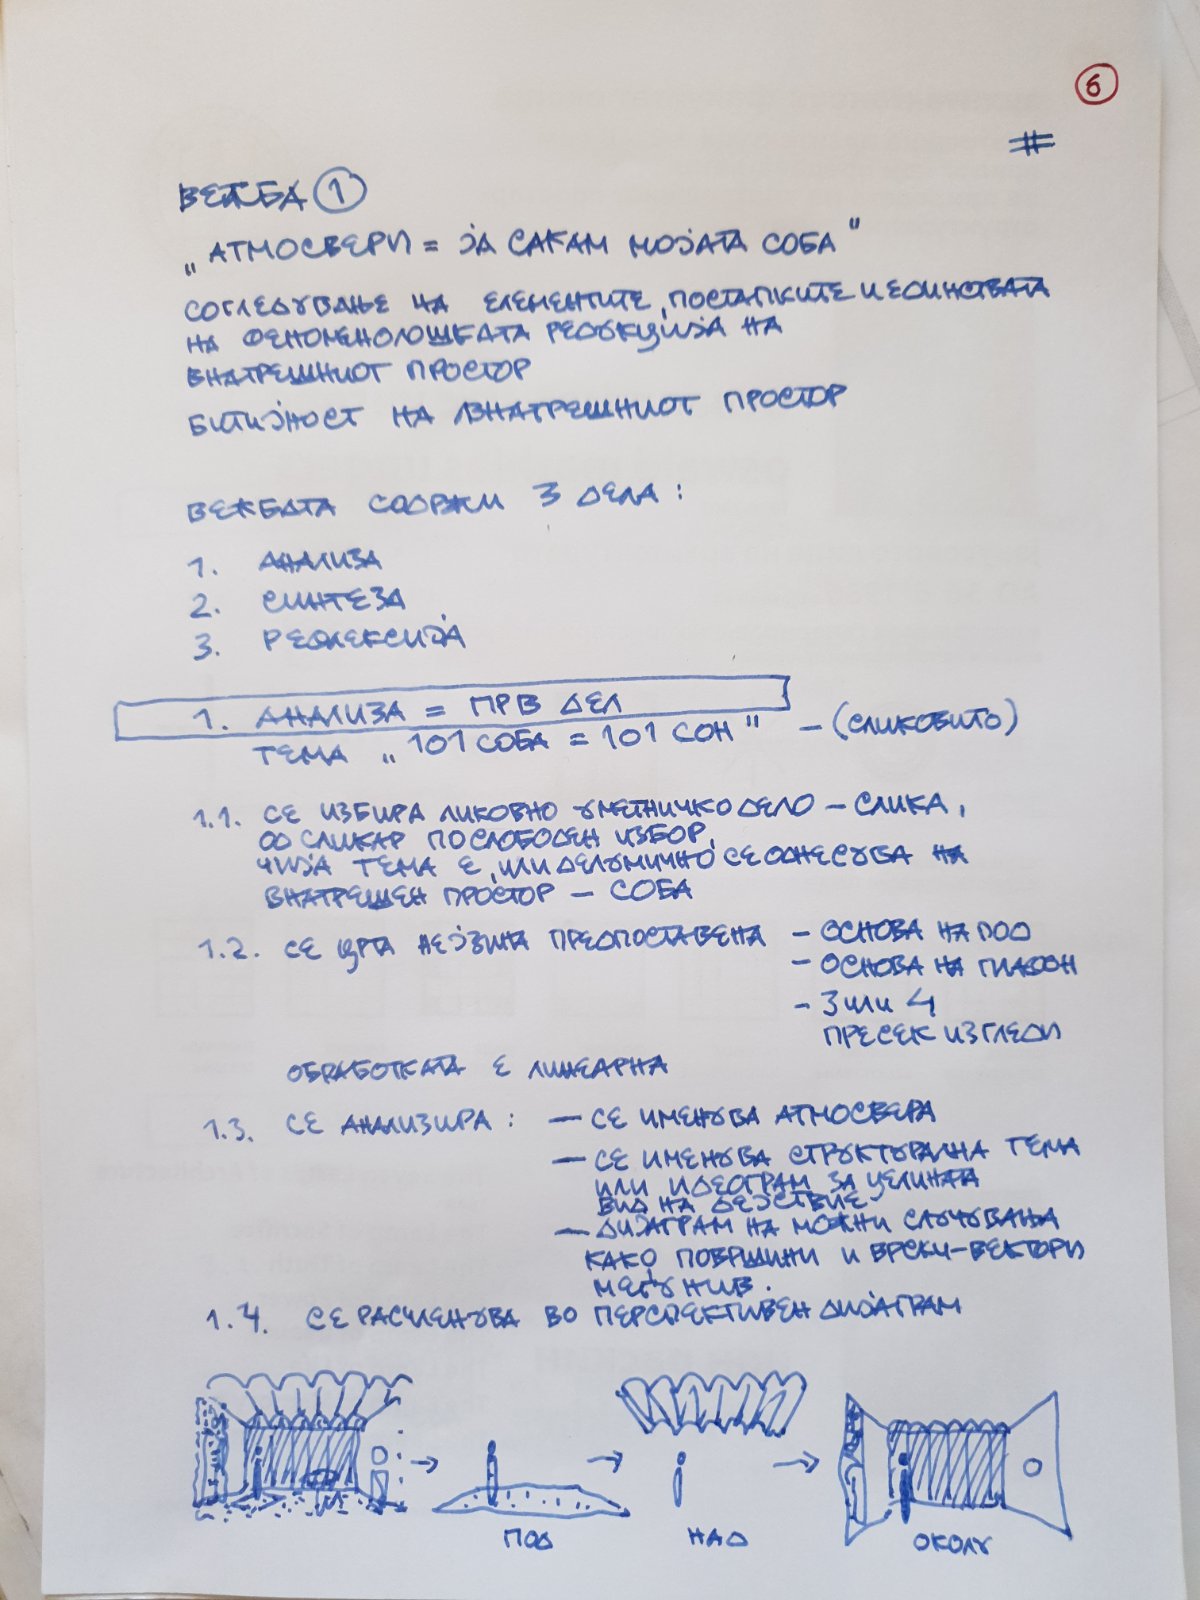 6
#
ВЕЖБА 1
„АТМОСВЕРИ = ЈА САКАМ МОЈАТА СОБА"
СОГЛЕДУВАЊЕ НА ЕЛЕМЕНТИТЕ, ПОСТАПКИТЕ И ЕДИНСТВАТА
НА ФЕНОМЕНОЛОШКАТА РЕДУКЦИЈА НА
ВНАТРЕШНИОТ ПРОСТОР
БИТИЈНОСТ НА ВНАТРЕШНИОТ ПРОСТОР
ВЕЖБАТА СОДРЖИ 3 ДЕЛА :
1. АНАЛИЗА
2. СИНТЕЗА
3. РЕФЛЕКСИЈА
1. АНАЛИЗА = ПРВ ДЕЛ
ТЕМА „101 СОБА = 101 СОН" – (СЛИКОВИТО)
1.1. СЕ ИЗБИРА ЛИКОВНО УМЕТНИЧКО ДЕЛО – СЛИКА,
ОД СЛИКАР ПО СЛОБОДЕН ИЗБОР,
ЧИЈА ТЕМА Е, ИЛИ ДЕЛУМИЧНО СЕ ОДНЕСУВА НА
ВНАТРЕШЕН ПРОСТОР – СОБА
1.2. СЕ ЦРТА НЕЈЗИНА ПРЕДПОСТАВЕНА – ОСНОВА НА ПОД
– ОСНОВА НА ПЛАФОН
– 3 ИЛИ 4
ПРЕСЕК ИЗГЛЕДИ
ОБРАБОТКАТА Е ЛИНЕАРНА
1.3. СЕ АНАЛИЗИРА : – СЕ ИМЕНУВА АТМОСВЕРА
– СЕ ИМЕНУВА СТРУКТУРАЛНА ТЕМА
ИЛИ ИДЕОГРАМ ЗА ЦЕЛИНАТА
ВИД НА ДЕЈСТВИЕ
– ДИЈАГРАМ НА МОЖНИ СЛУЧУВАЊА
КАКО ПОВРШИНИ И ВРСКИ-ВЕКТОРИ
МЕЃУ НИВ.
1.4. СЕ РАСЧЛЕНУВА ВО ПЕРСПЕКТИВЕН ДИЈАГРАМ
ПОД НАД ОКОЛУ